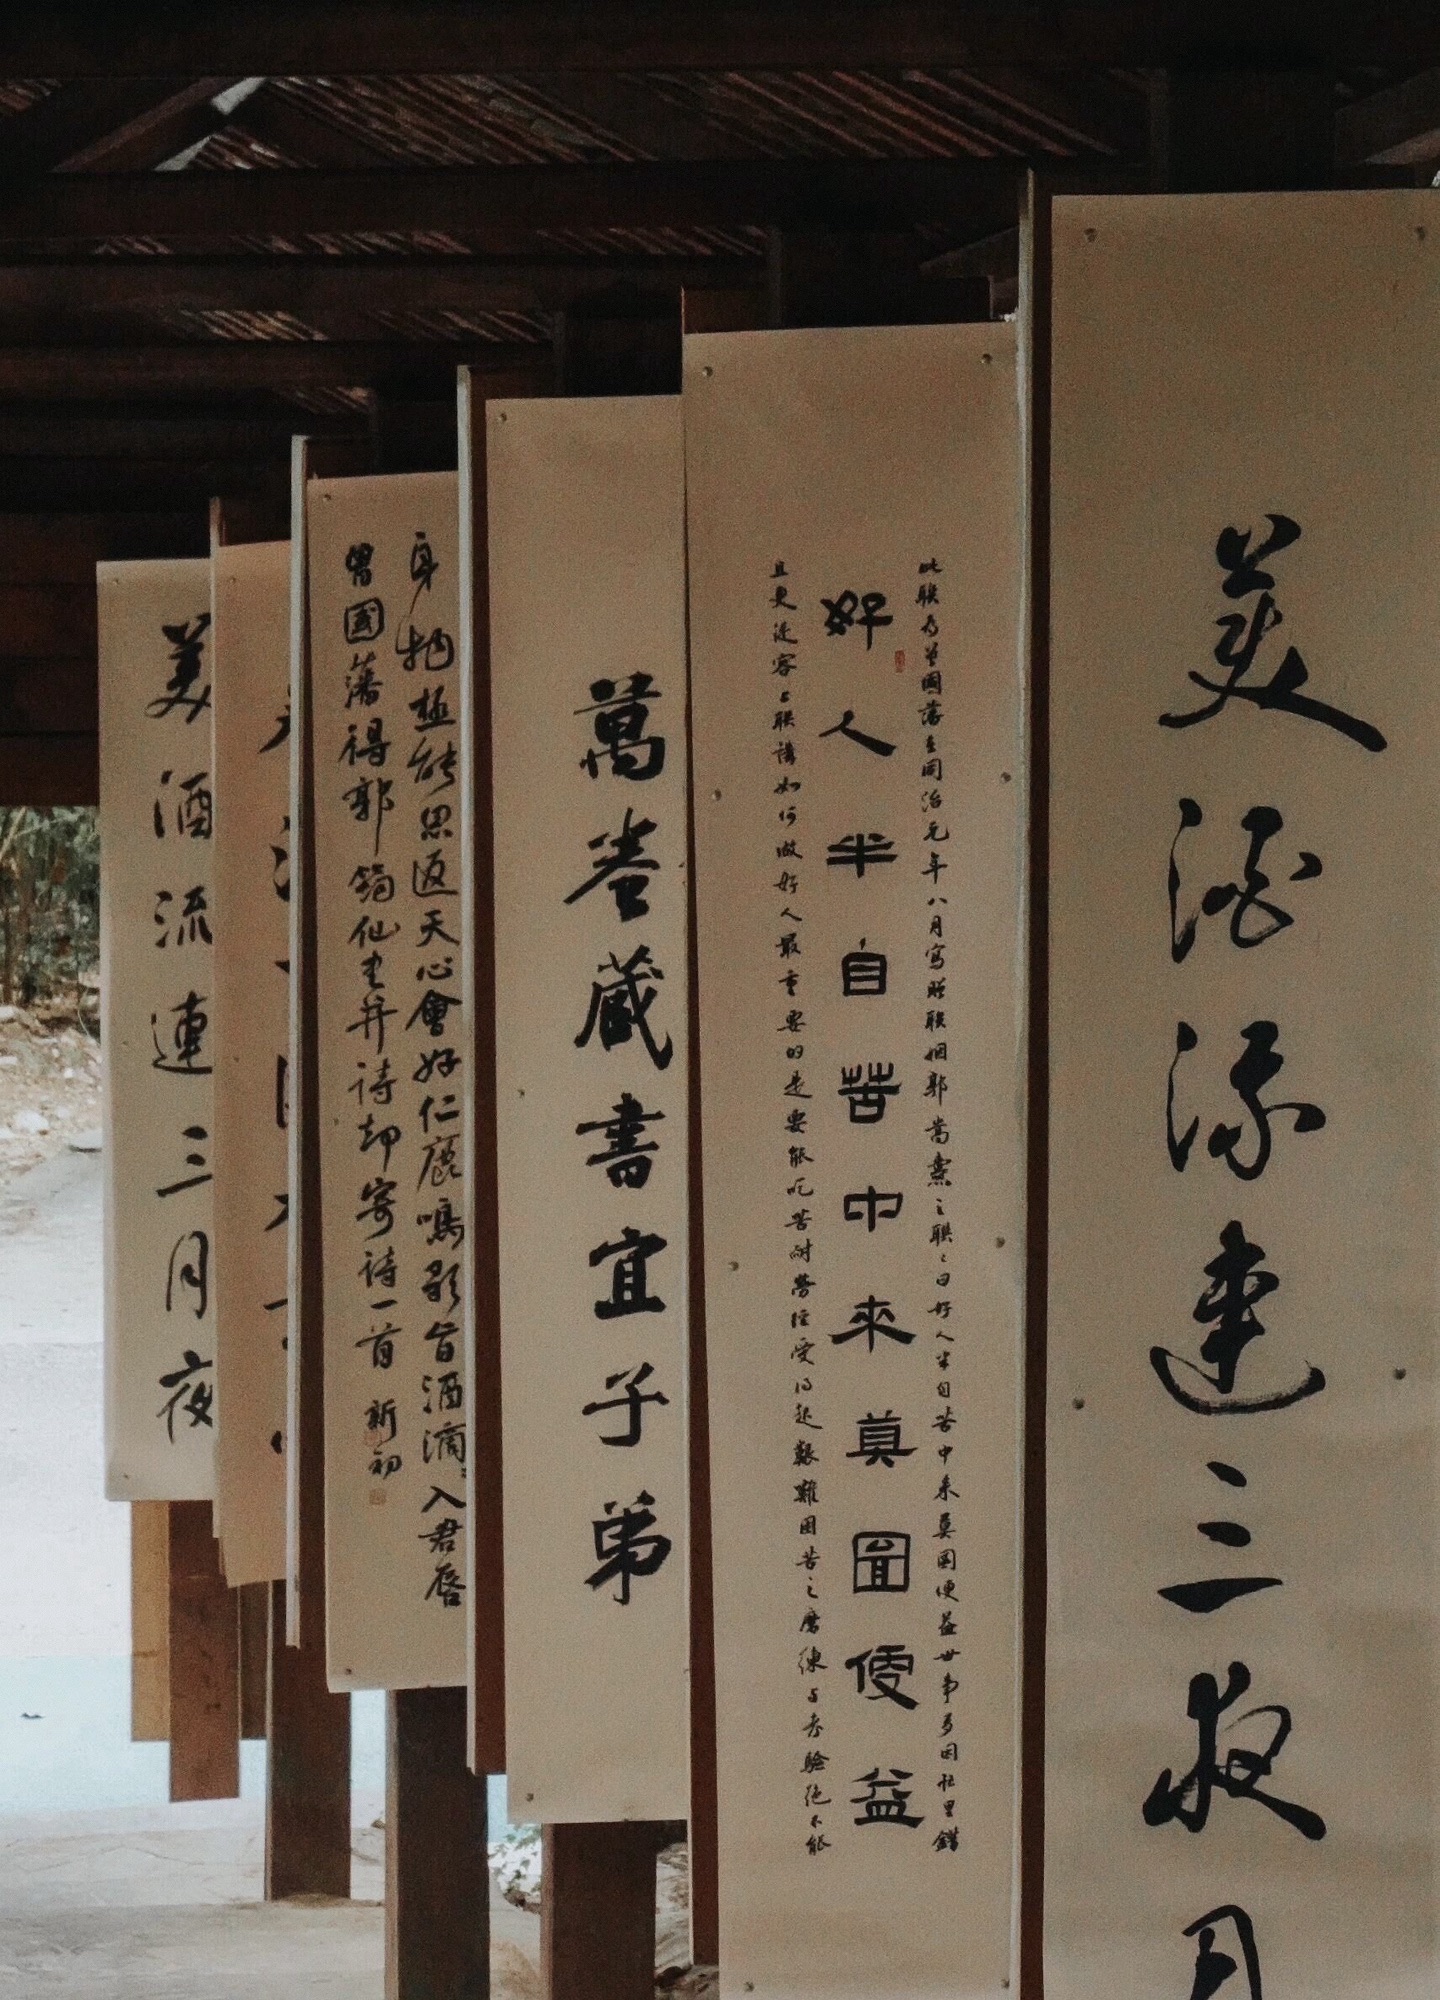 美酒流連三夜月
此联为曾國藩在同治元年八月寫贈联姻郭嵩燾之联〻曰好人半自苦中來莫圖便益世事多因忙里錯
好人半自苦中來莫圖便益
且更淫容上联講如何做好人最重要的是要能吃苦耐勞經受得起艱難困苦之磨練与考驗絕不能
萬卷藏書宜子弟
身物極能思返天心會好仁鹿鳴歌旨酒滴滴入君唇
曾國藩得郭筠仙書并詩却寄詩一首 新初
美酒流連三月夜